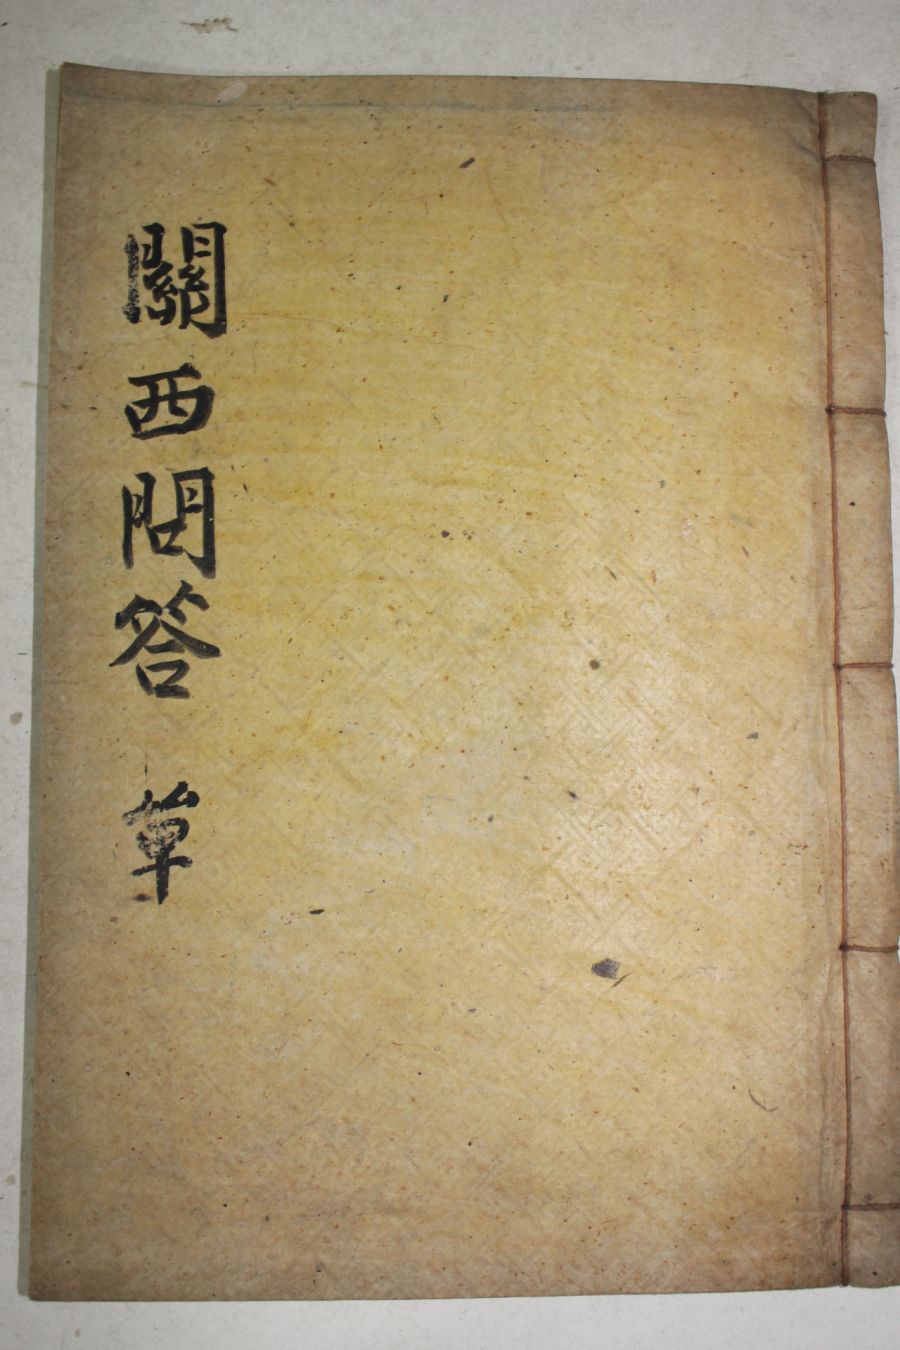 關西問答 單